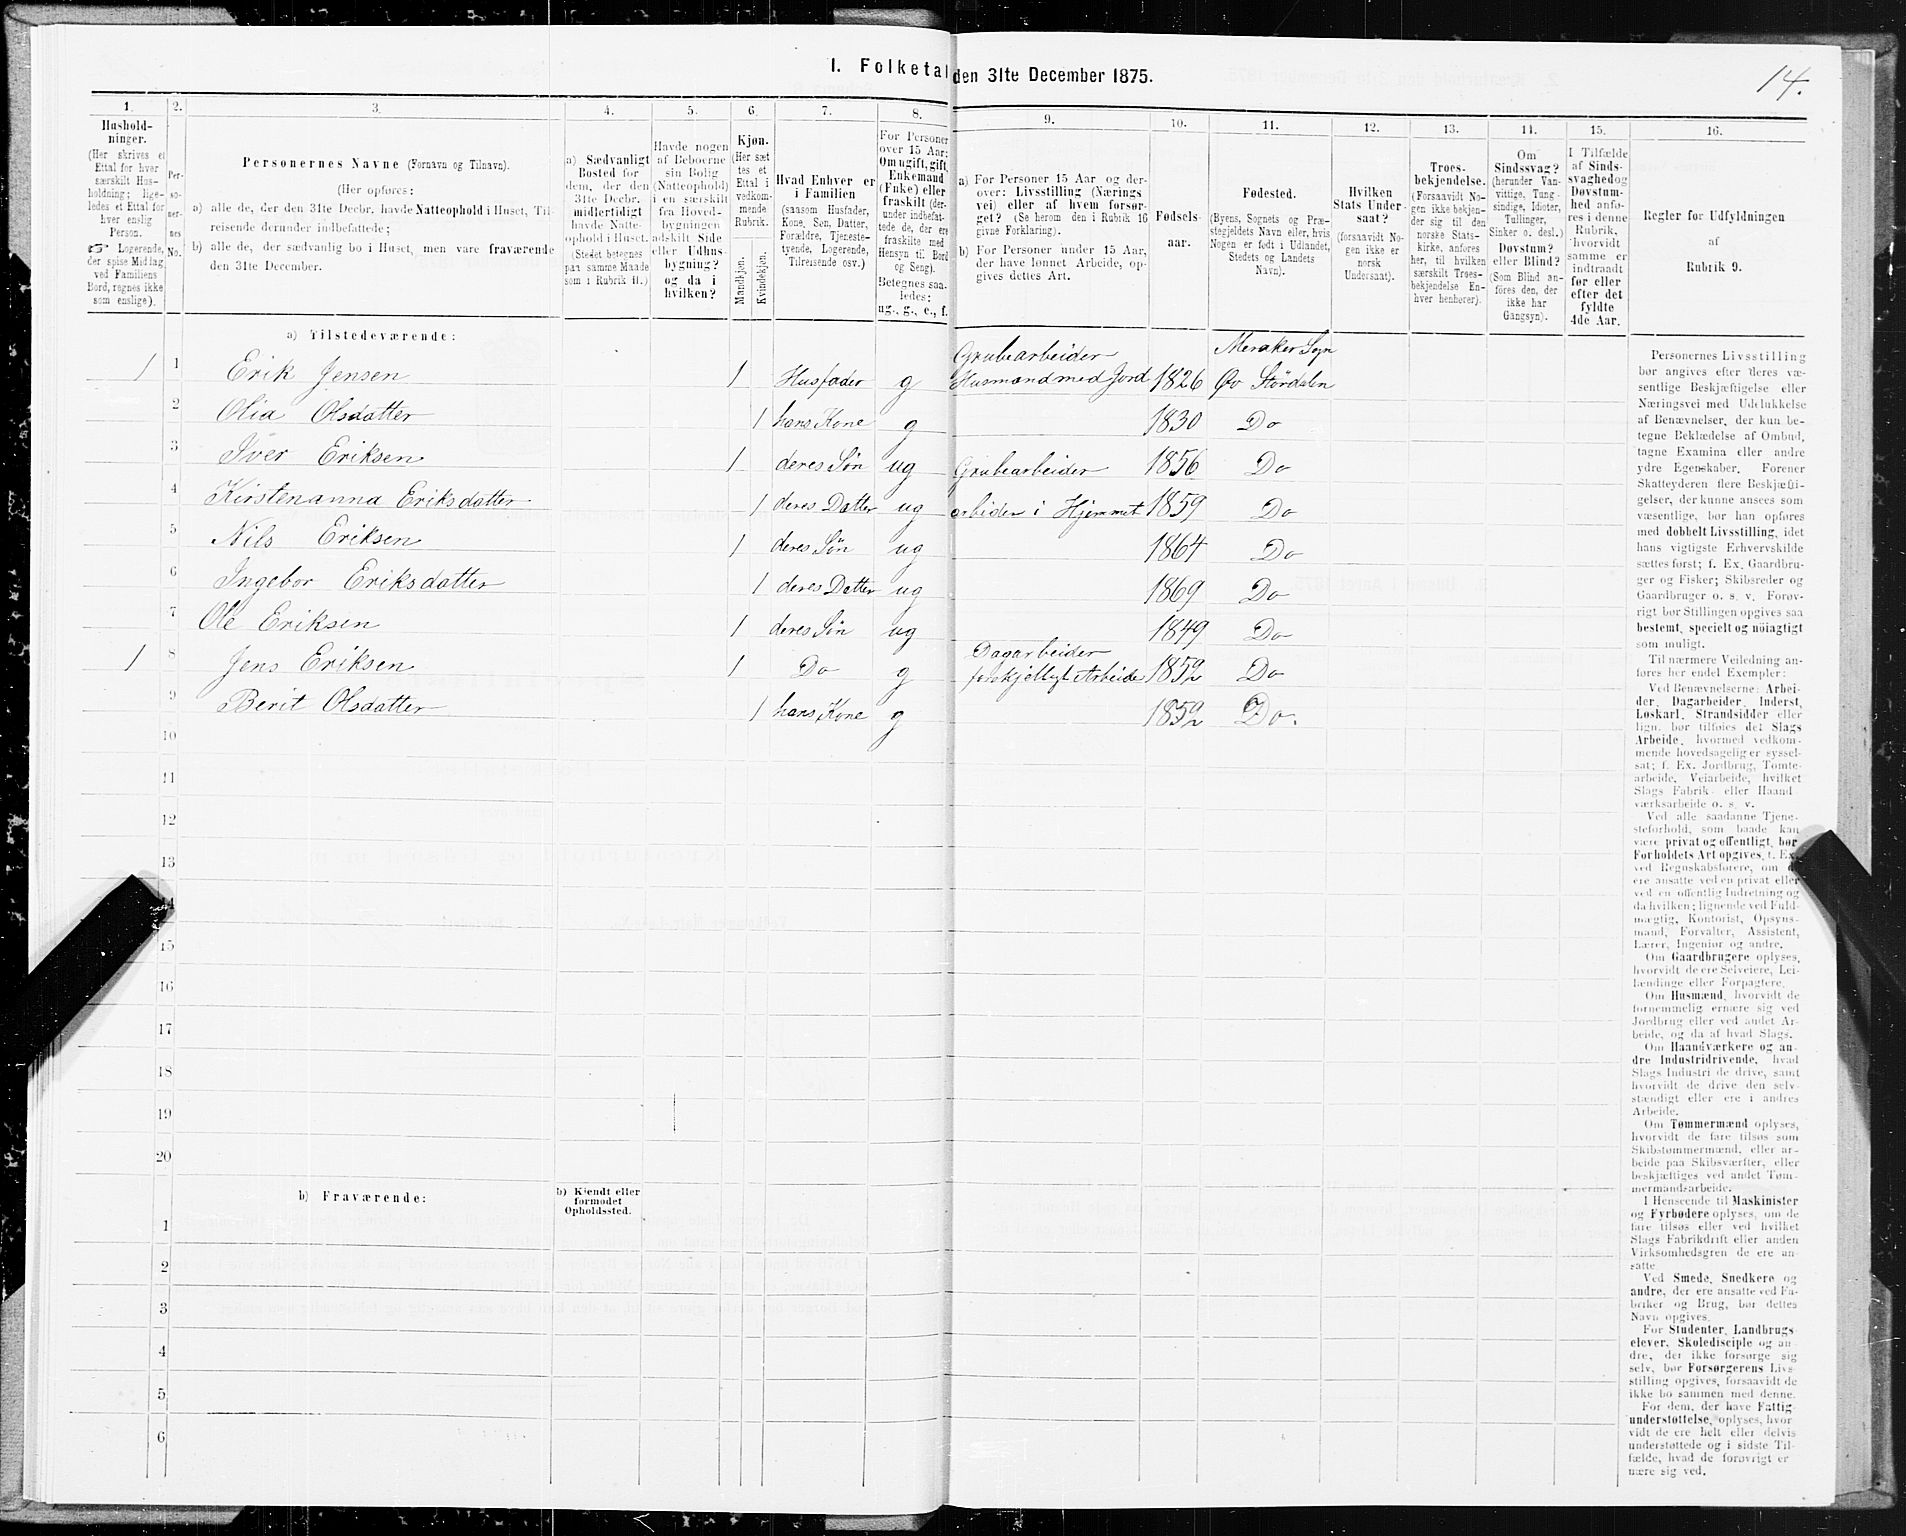 I. Folketal den 31te December 1875.
14.
1. 2. 3. 4. 5. 6. 7. 8. 9. 10. 11. 12. 13. 14. 15. 16.
Husholdninger.
(Her skrives et
Ettal for hver
særskilt Husholdning; ligeledes et Ettal for
hver enslig
Person.
Logerende,
der spise Middag
ved Familiens
Bord, regnes ikke
som enslige).
Personernes No.
Personernes Navne (Fornavn og Tilnavn).
(Her opføres:
a) alle de, der den 31te Decbr. havde Natteophold i Huset, Tilreisende derunder indbefattede;
b) alle de, der sædvanlig bo i Huset, men vare fraværende
den 31te December.
a) Sædvanligt
Bosted for
dem, der den
31te Decbr.
midlertidigt
havde Natteophold i Huset.
(Stedet betegnes
paa samme Maade
som i Rubrik 11.)
Havde nogen
af Beboerne
sin Bolig
(Natteophold)
i en særskilt
fra Hovedbygningen
adskilt Side
eller Udhusbygning?
og da i
hvilken?
Kjøn.
(Her sættes et
Ettal i
vedkommende
Rubrik.
Mandkjøn.
Kvindekjøn.
Hvad Enhver er
i Familien
(saasom Husfader,
Kone, Søn, Datter,
Forældre, Tjenestetyende, Logerende,
Tilreisende osv.)
For Personer
over 15 Aar:
Om ugift, gift,
Enkemand
(Enke) eller
fraskilt (derunder indbefattede de, der ere
fraskilte med
Hensyn til Bord
og Seng).
Betegnes saaledes:
ug., g., e., f.
a) For Personer 15 Aar og derover: Livsstilling (Næringsvei) eller af hvem forsørget? (Se herom den i Rubrik 16
givne Forklaring).
b) For Personer under 15 Aar,
der have lønnet Arbeide, opgives dettes Art.
Fødselsaar.
Fødested.
(Byens, Sognets og Præstegjeldets Navn eller, hvis
Nogen er født i Udlandet,
Stedets og Landets
Navn).
Hvilken
Stats Undersaat?
(forsaavidt Nogen ikke er
norsk
Undersaat).
Troesbekjendelse.
(Forsaavidt Nogen ikke bekjender sig til den
norske Statskirke, anføres
her, til hvilken
særskilt Troesbekjendelse Enhver henhører).
Om
Sindssvag?
(herunder Vanvittige, Tungsindige, Idioter,
Tullinger,
Sinker o. desl.)
Døvstum?
eller Blind?
(Som Blind anføres den, der
ikke har
Gangsyn).
I Tilfælde
af Sindssvaghed og
Døvstumhed anføres i denne
Rubrik,
hvorvidt
samme er
indtraadt
før eller
efter det
fyldte
4de Aar.
Regler for Udfyldningen
af
Rubrik 9.
a) Tilstedeværende:
1 1 Erik Jensen 1 Husfader g Grubearbeider Husmand med Jord 1826 Meraker Sogn Øv Stördalen
2 Olia Olsdatter 1 hans Kone g 1830 Do
3 Iver Eriksen 1 deres Søn ug Grubearbeider 1856 Do
4 Kirstenanna Eriksdatter 1 deres Datter ug arbeider i Hjemmet 1859 Do
5 Nils Eriksen 1 deres Søn ug 1864 Do
6 Ingebor Eriksdatter 1 deres Datter ug 1869 Do
7 Ole Eriksen 1 deres Søn ug 1849 Do
1 8 Jens Eriksen 1 Do g Dagarbeider forskjelligt Arbeide 1852 Do
9 Berit Olsdatter 1 hans Kone g 1852 Do.
10
11
12
13
14
15
16
17
18
19
20
b) Fraværende:
b) Kjendt eller
formodet
Opholdssted.
1
2
3
4
5
6
Personernes Livsstilling
bør angives efter deres væsentlige Beskjæftigelse eller
Næringsvei med Udelukkelse
af Benævnelser, der kun betegne Beklædelse af Ombud,
tagne Examina eller andre
ydre Egenskaber. Forener
Skatteyderen flere Beskjæftigelser, der kunne ansees som
væsentlige, bør han opføres
med dobbelt Livsstilling, idet
hans vigtigste Erhvervskilde
sættes først; f. Ex. Gaardbruger og Fisker; Skibsreder og
Gaardbruger o. s. v. Forøvrigt bør Stillingen opgives saa
bestemt, specielt og nøiagtigt
som muligt.
Til nærmere Veiledning anføres her endel Exempler:
Ved Benævnelserne: Arbeider, Dagarbeider, Inderst,
Løskarl, Strandsidder eller
lign. bør tilføies det Slags
Arbeide, hvormed vedkommende hovedsagelig er sysselsat; f. Ex. Jordbrug, Tømtearbeide, Veiarbeide, hvilket
Slags Fabrik- eller Haandværksarbeide o. s. v.
Ved alle saadanne Tjenesteforhold, som baade kan
være privat og offentligt, bør
Forholdets Art opgives, f. Ex.
ved Regnskabsførere, om de
ere ansatte ved en privat eller
ved en offentlig Indretning og
da hvilken; lignende ved Fuldmægtig, Kontorist, Opsynsmand, Forvalter, Assistent,
Lærer, Ingeniør og andre.
Om Gaardbrugere oplyses,
hvorvidt de ere Selveiere, Leilændinge eller Forpagtere.
Om Husmænd, hvorvidt de
fornemmelig ernære sig ved
Jordbrug eller ved andet Arbeide, og da af hvad Slags.
Om Haandværkere og andre Industridrivende, hvad
Slags Industri de drive, samt
hvorvidt de drive den selvstændigt eller ere i andres
Arbeide.
Om Tømmermænd oplyses,
hvorvidt de fare tilsøs som
Skibstømmermænd, eller arbeide paa Skibsværfter, eller
beskjæftiges ved andet Tømmermandsarbeide.
I Henseende til Maskinister
og Fyrbødere oplyses, om de
fare tilsøs eller ved hvilket
Slags Fabrikdrift eller anden
Virksomhedsgren de ere ansatte.
Ved Smede, Snedkere og
andre, der ere ansatte ved Fabriker og Brug, bør dettes
Navn opgives.
For Studenter, Landbrugselever, Skoledisciple og andre, der ikke forsørge sig
selv, bør Forsørgerens Livsstilling opgives, forsaavidt de
ikke bo sammen med denne.
For dem, der have Fattigunderstøttelse, oplyses, hvorvidt de ere helt eller delvis
understøttede og i sidste Tilfælde, hvad de forøvrigt ernære sig ved.